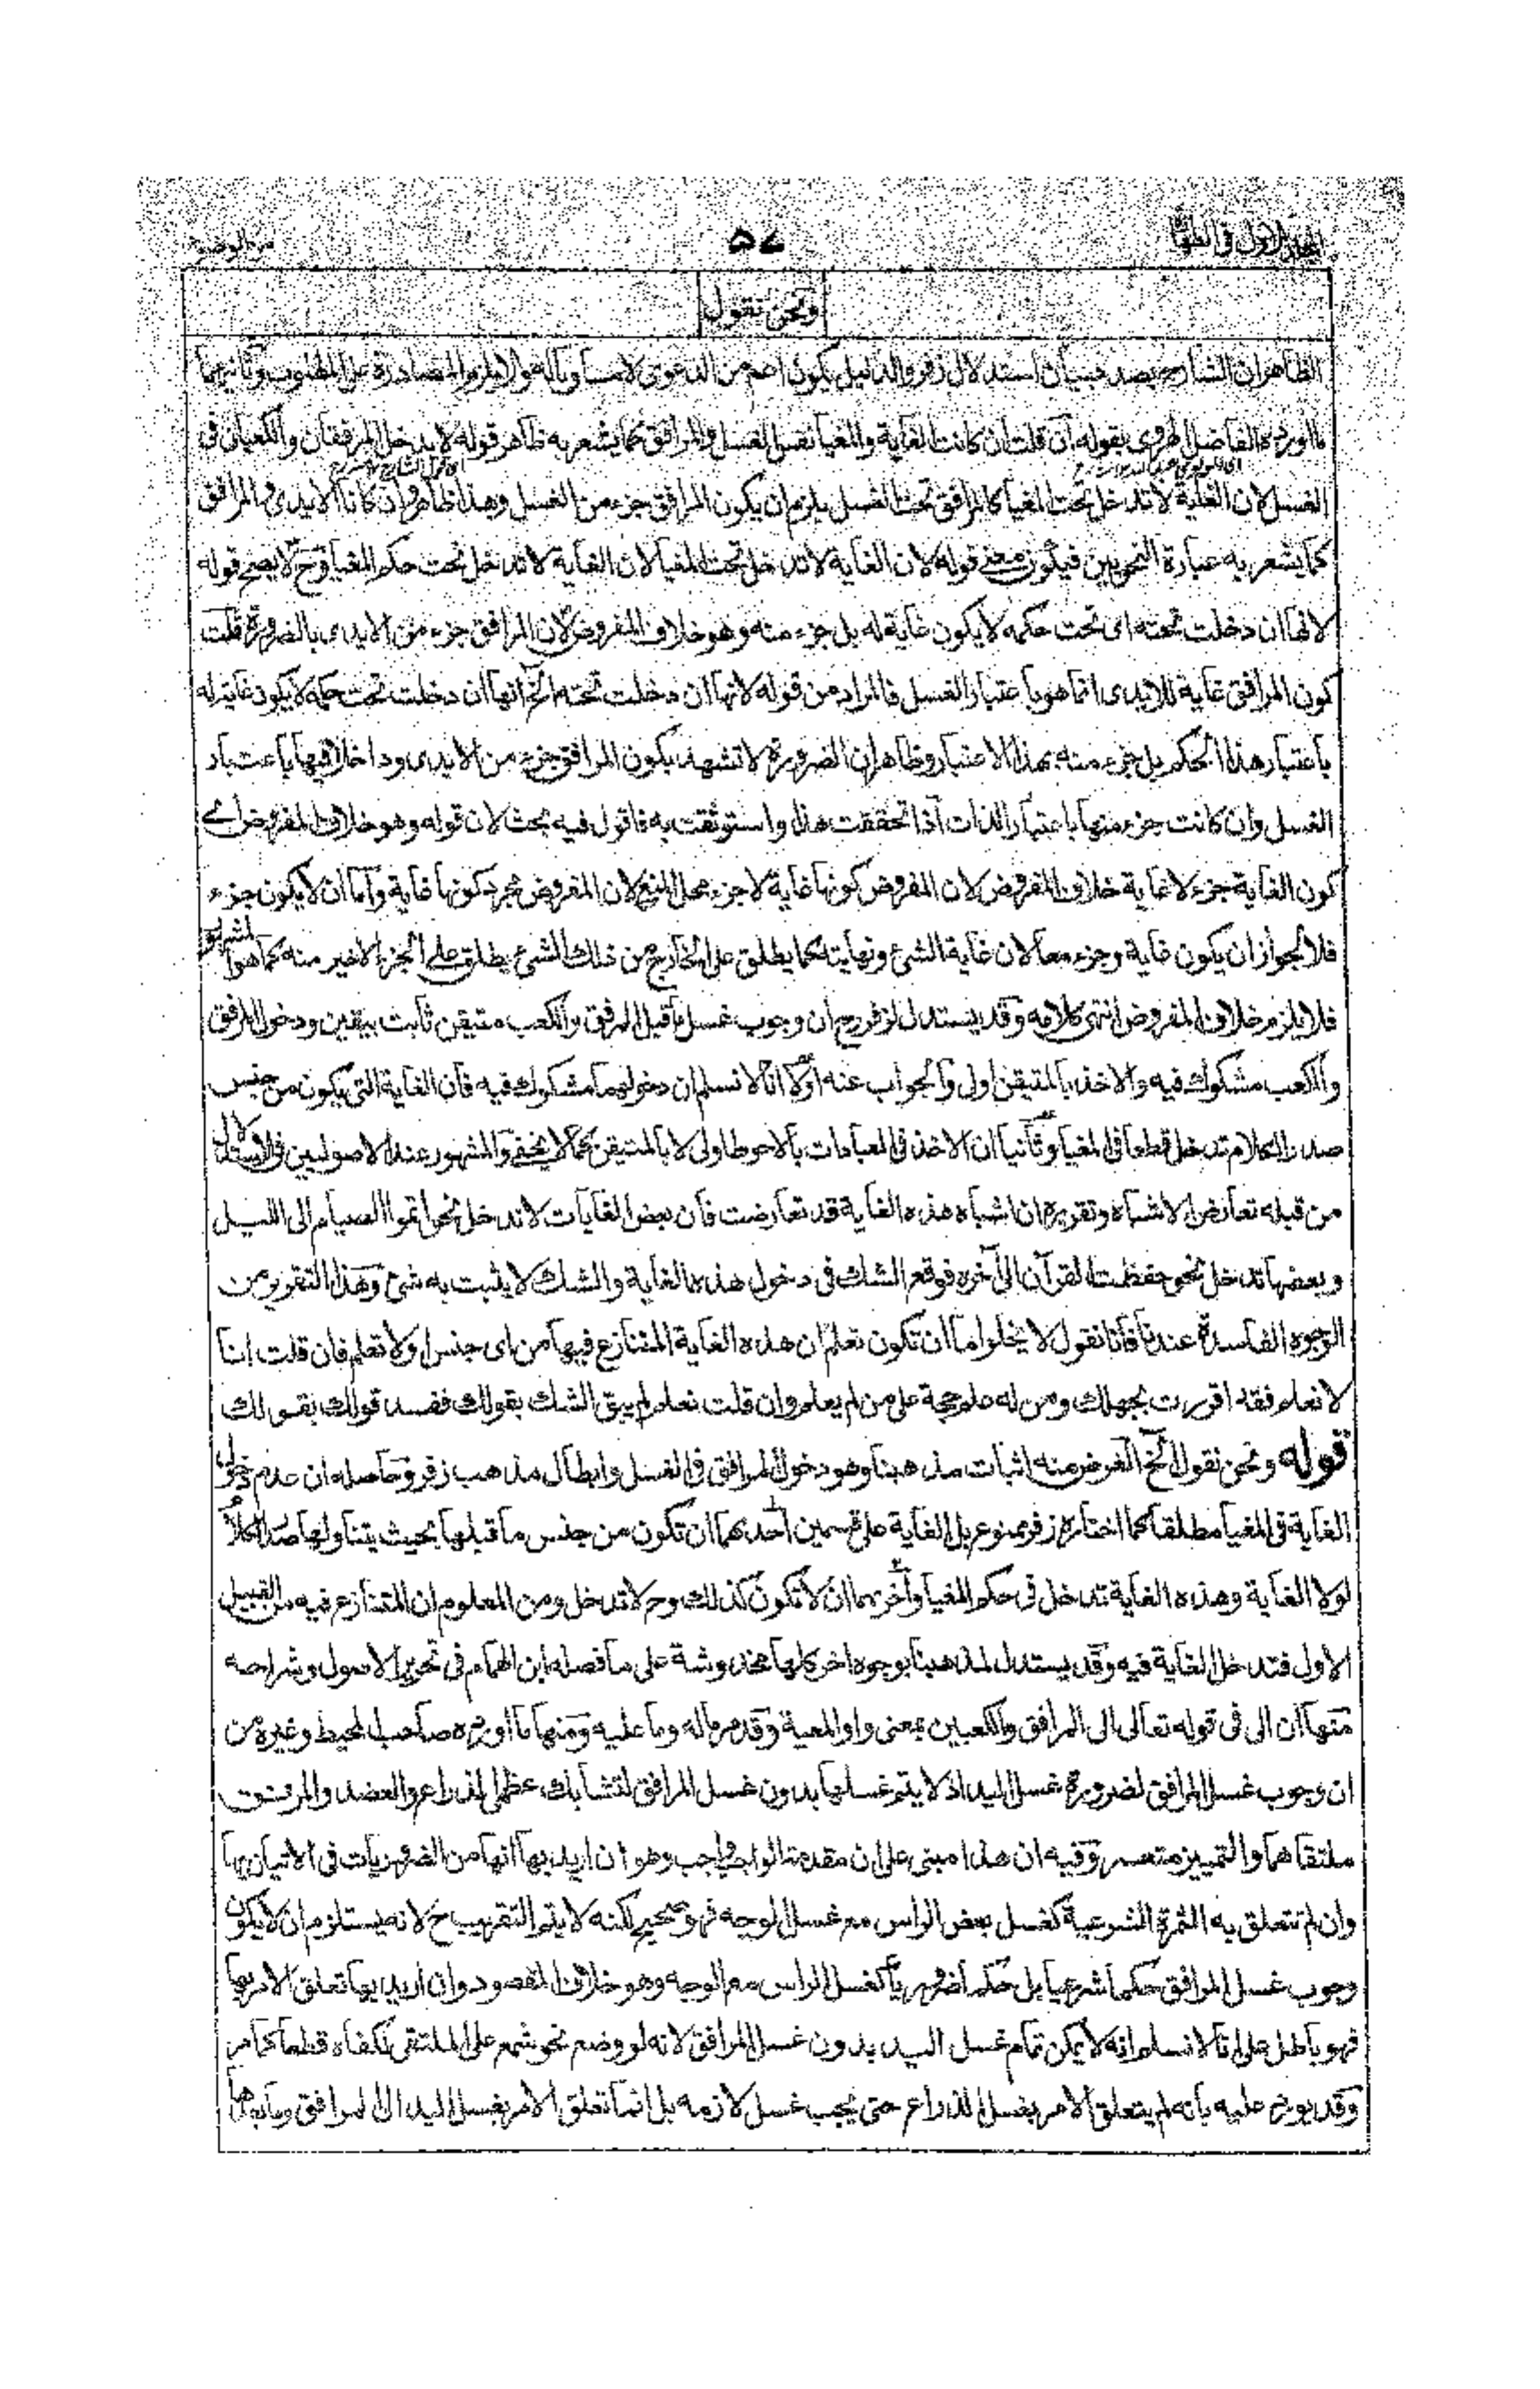 المجلد الاول فى الطهارة
٥٧
من الوضوء
ونحن نقول
الظاهر ان الشارح بصدد بيان استدلال زفر والدليل يكون اعم من الدعوى لا مساويا له والا يلزم المصادرة على المطلوب وثانيهما
ما اورده الفاضل الهروى بقوله ان قلت ان كانت الغاية والمغيا نفس الغسل والمرافق كما يشعر به ظاهر قوله لا يدخل المرفقان والكعبان فى
الغسل لان الغاية لا تدخل تحت المغيا كالمرافق تحت الغسل يلزم ان يكون المرافق جزء من الغسل وهذا ظاهر وان كانا الايدى والمرافق
كما يشعر به عبارة النحويين فيكون معنى قوله لان الغاية لا تدخل تحت المغيا لان الغاية لا تدخل تحت حكم المغيا وح لا يصح قوله
لانها ان دخلت تحته اى تحت حكمه لا يكون غاية له بل جزء منه وهو خلاف المفروض لان المرافق جزء من الايدى بالضرورة قلت
كون المرافق غاية للايدى انما هو باعتبار الغسل فالمراد من قوله لانها ان دخلت تحته الخ انها ان دخلت تحت حكمه لا يكون غاية له
باعتبار هذا الحكم بل جزء منه بهذا الاعتبار وظاهر ان الضرورة لا تشهد بكون المرافق جزء من الايدى وداخلا فيها باعتبار
الغسل وان كانت جزء منها باعتبار الذات اذا تحققت هذا واستوثقت به فاقول فيه بحث لان قوله وهو خلاف المفروض اى
كون الغاية جزء لا غاية خلاف المفروض لان المفروض كونها غاية لا جزء محل المنع لان المفروض مجرد كونها غاية واما ان لا يكون جزء
فلا لجواز ان يكون غاية وجزء معا لان غاية الشئ ونهايته كما يطلق على الخارج من ذلك الشئ يطلق على الجزء الاخير منه كما هو المشهور
فلا يلزم خلاف المفروض انتهى كلامه وقد يستدل لزفر رح ان وجوب غسل ما قبل المرفق والكعب متيقن ثابت بيقين ودخول المرفق
والكعب مشكوك فيه والاخذ بالمتيقن اولى والجواب عنه اولا انا لا نسلم ان دخولهما مشكوك فيه فان الغاية التى يكون من جنس
صدر الكلام تدخل قطعا فى المغيا وثانيا ان الاخذ فى العبادات بالاحوط اولى لا بالمتيقن كما لا يخفى والمشهور عند الاصوليين فى الاستدلال
من قبله تعارض الاشباه وتقريره ان اشباه هذه الغاية قد تعارضت فان بعض الغايات لا تدخل نحو اتموا الصيام الى الليل
وبعضها تدخل نحو حفظت القرآن الى آخره فوقع الشك فى دخول هذه الغاية والشك لا يثبت به شئ وهذا التقرير من
الوجوه الفاسدة عندنا فانا نقول لا يخلو اما ان تكون تعلم ان هذه الغاية المتنازع فيها من اى جنس او لا تعلم فان قلت انا
لا نعلم فقد اقررت بجهلك ومن له علم حجة على من لم يعلم وان قلت نعلم لم يبق الشك بقولك ففسد قولك بقولك
قوله ونحن نقول الخ الغرض منه اثبات مذهبنا وهو دخول المرافق فى الغسل وابطال مذهب زفر وحاصله ان عدم دخول
الغاية فى المغيا مطلقا كما اختاره زفر ممنوع بل الغاية على قسمين احدهما ان تكون من جنس ما قبلها بحيث يتناولها صدر الكلام
لولا الغاية وهذه الغاية تدخل فى حكم المغيا وآخرهما ان لا تكون كذلك وح لا تدخل ومن المعلوم ان المتنازع فيه من القبيل
الاول فتدخل الغاية فيه وقد يستدل لمذهبنا بوجوه اخر كلها مخدوشة على ما فصله ابن الهمام فى تحرير الاصول وشراحه
منها ان الى فى قوله تعالى الى المرافق والكعبين بمعنى واو المعية وقد مر ماله وما عليه ومنها ما اورده صاحب المحيط وغيره من
ان وجوب غسل المرافق لضرورة غسل اليد اذ لا يتم غسلها بدون غسل المرافق لتشابك عظمى الذراع والعضد والمرفق
ملتقاهما والتمييز متعسر وفيه ان هذا مبنى على ان مقدمة الواجب واجب وهو ان اريد بها انها من الضروريات فى الاتيان بها
وان لم تتعلق به الثمرة الشرعية كغسل بعض الراس مع غسل الوجه فهو صحيح لكنه لا يتم التقريب ح لانه يستلزم ان لا يكون
وجوب غسل المرافق حكما شرعيا بل حكما ضروريا كغسل الراس مع الوجه وهو خلاف المقصود وان اريد بها تعلق الامر بها
فهو باطل على انا لا نسلم انه لا يمكن تمام غسل اليد بدون غسل المرافق لانه لو وضع نحو شمع على الملتقى لكفاه قطعا كما مر
وقد يورد عليه بانه لم يتعلق الامر بغسل الذراع حتى يجب غسل لازمه بل انما تعلق الامر بغسل اليد الى المرافق وما بعدها